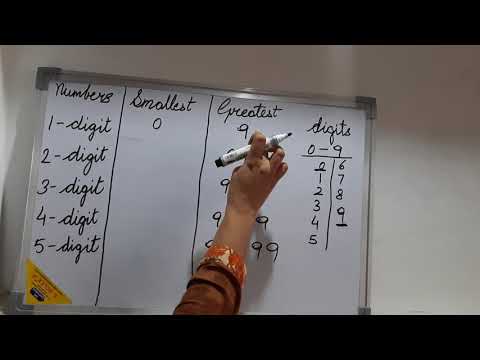 Numbers Smallest Greatest digits
1-digit 0 9 0-9
2-digit
3-digit 9
4-digit 9 9
5-digit 9 99
0 6
1 7
2 8
3 9
4
5